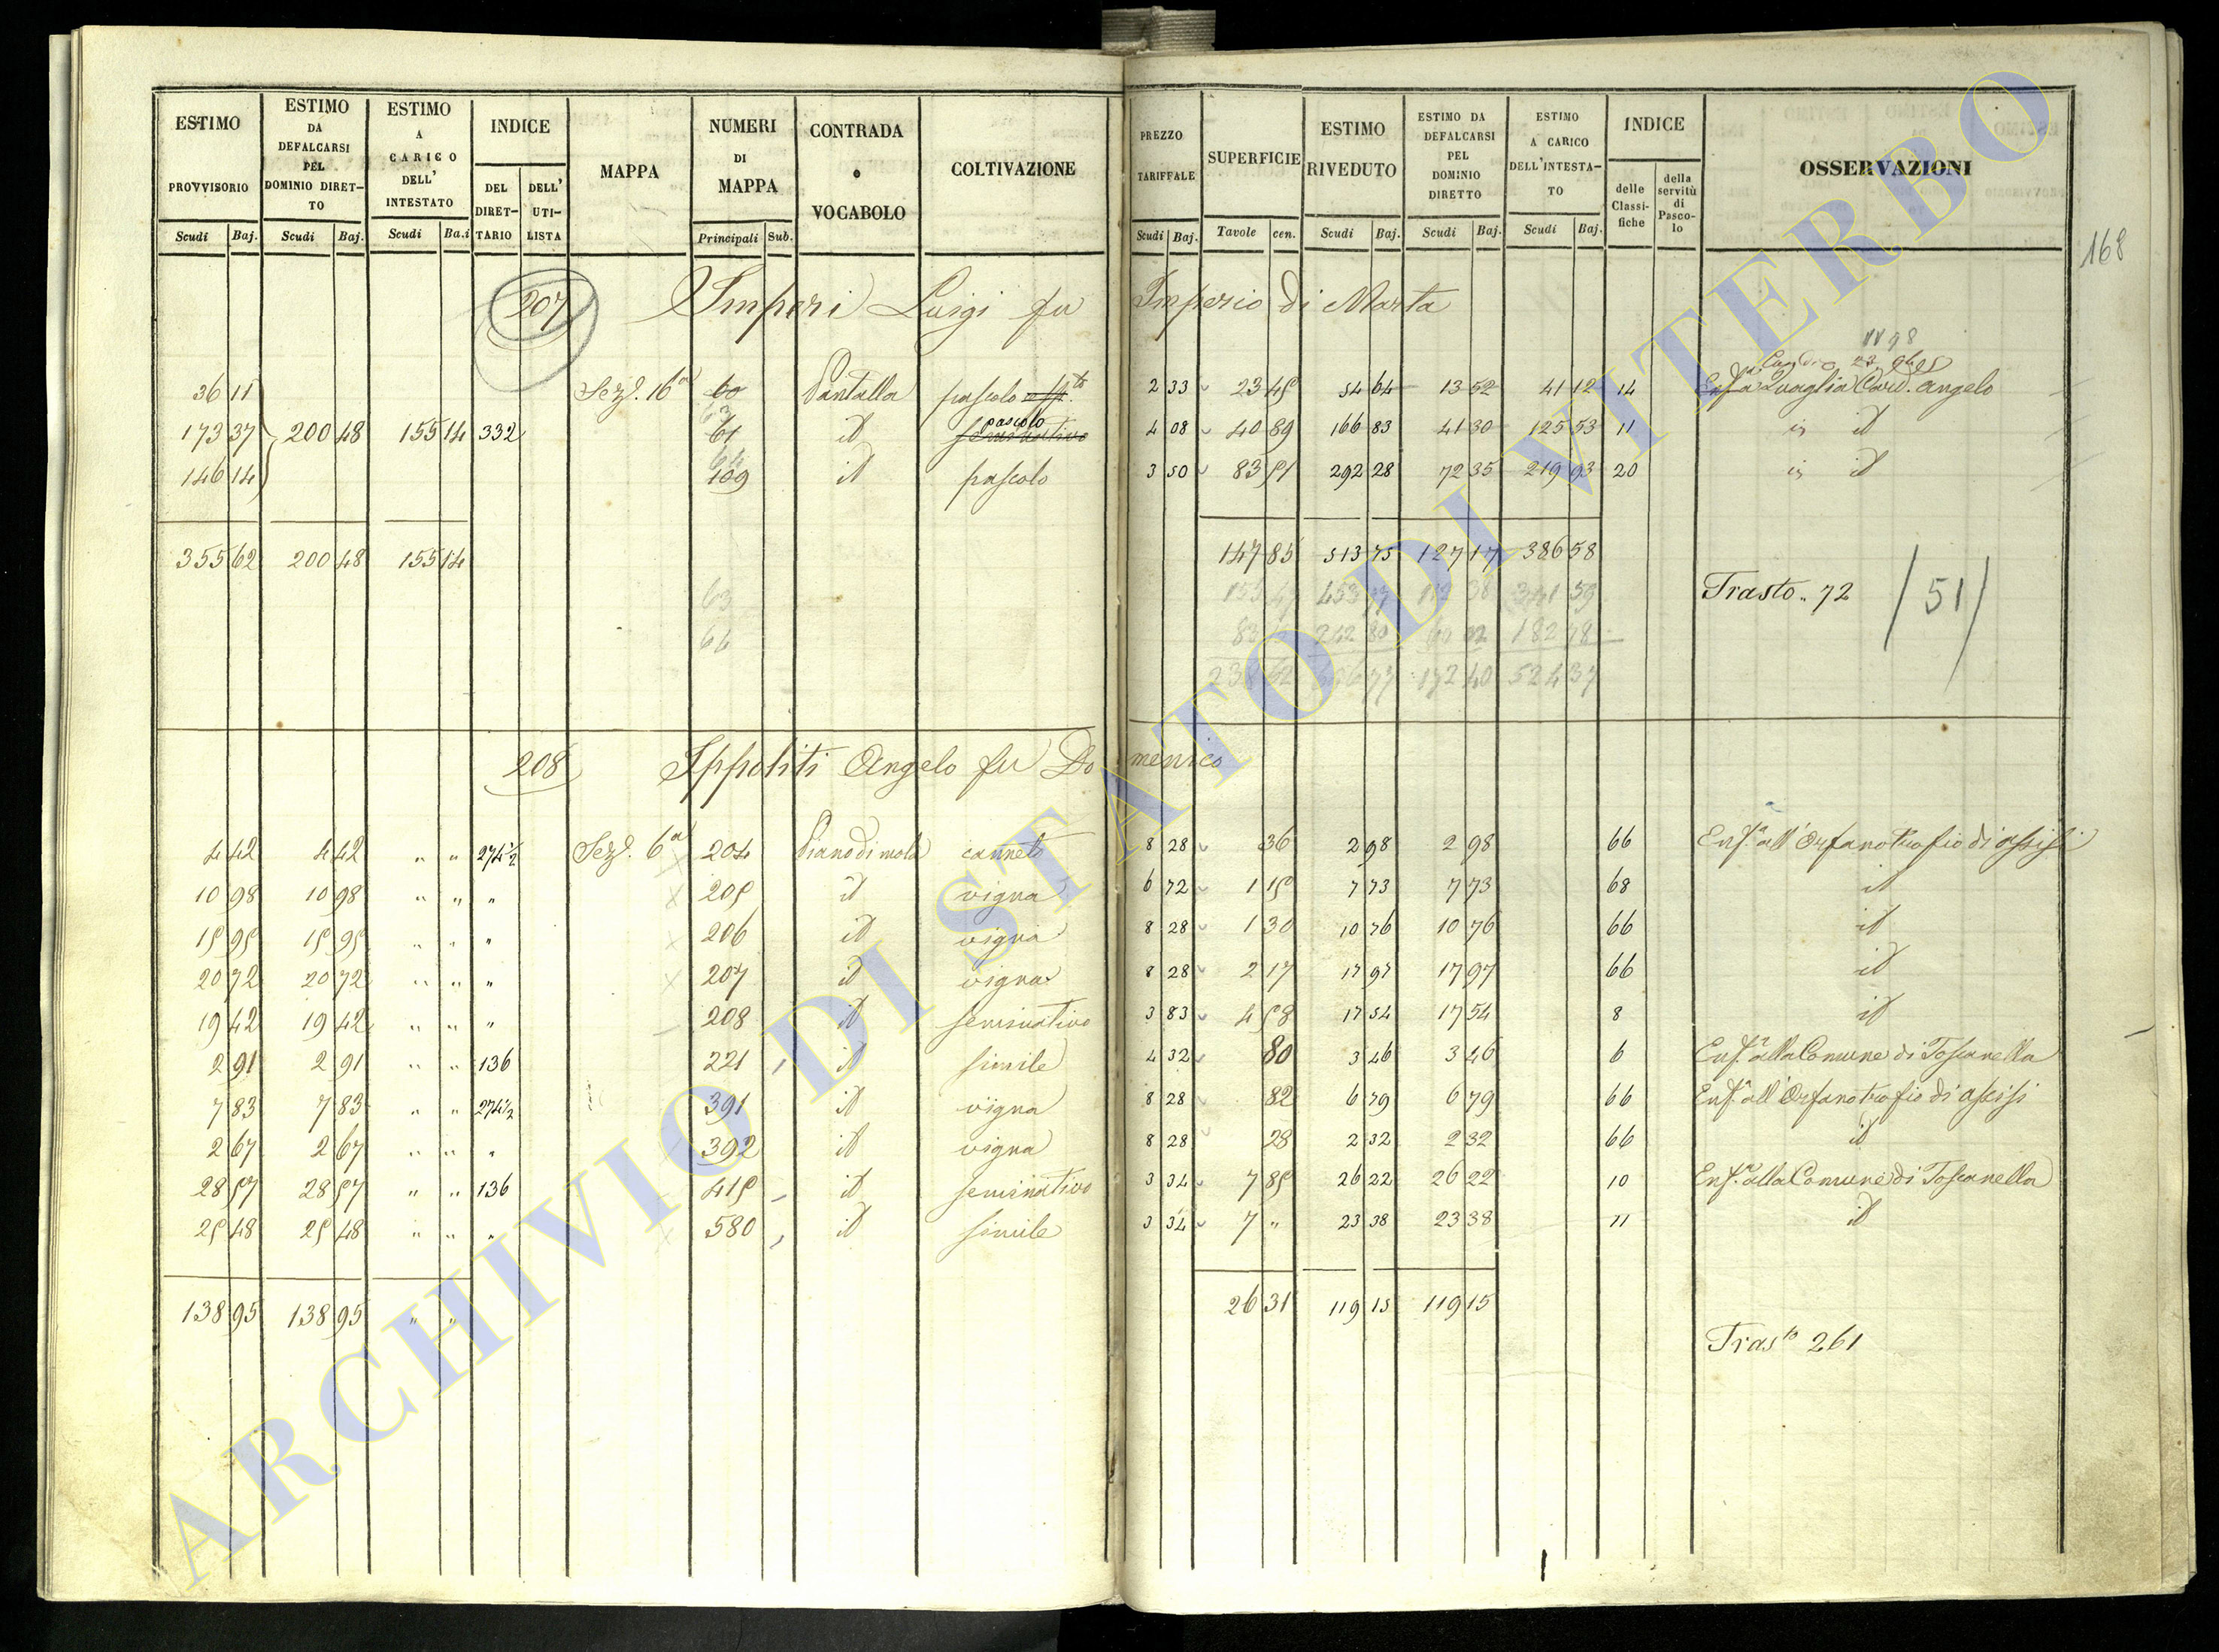 ESTIMO PROVVISORIO Scudi Baj. | ESTIMO DA DEFALCARSI PEL DOMINIO DIRETTO Scudi Baj. | ESTIMO A CARICO DELL' INTESTATO Scudi Ba.i | INDICE DEL DIRETTARIO DELL' UTILISTA | MAPPA | NUMERI DI MAPPA Principali Sub. | CONTRADA o VOCABOLO | COLTIVAZIONE | PREZZO TARIFFALE Scudi Baj. | SUPERFICIE Tavole cen. | ESTIMO RIVEDUTO Scudi Baj. | ESTIMO DA DEFALCARSI PEL DOMINIO DIRETTO Scudi Baj. | ESTIMO A CARICO DELL'INTESTATO Scudi Baj. | INDICE delle Classifiche della servitù di Pascolo | OSSERVAZIONI
168
207 Imperi Luigi fu Imperio di Marta
36 11 Sez. 16a 60 Pantalla pascolo 2 33 23 45 54 64 13 52 41 12 14 Enfa Quaglia Card. Angelo
173 37 200 48 155 14 332 63 61 id pascolo seminativo 4 08 40 89 166 83 41 30 125 53 11 id
146 14 64 109 id pascolo 3 50 83 51 292 28 72 35 219 93 20 id
355 62 200 48 155 14 147 85 513 75 127 17 386 58
63
64
Trasto.. 72 /51/
208 Ippoliti Angelo fu Domenico
4 42 4 42 " " 274 1/2 Sez. 6a 204 Piano di mola canneto 8 28 36 2 98 2 98 66 Enf.a all'Orfanotrofio di Assisi
10 98 10 98 " " " 205 id vigna 6 72 1 15 7 73 7 73 68 id
15 95 15 95 " " " 206 id vigna 8 28 1 30 10 76 10 76 66 id
20 72 20 72 " " " 207 id vigna 8 28 2 17 17 97 17 97 66 id
19 42 19 42 " " " 208 id seminativo 3 83 4 58 17 54 17 54 8 id
2 91 2 91 " " 136 221 id simile 4 32 80 3 46 3 46 6 Enf.a alla Comune di Toscanella
7 83 7 83 " " 274 1/2 391 id vigna 8 28 82 6 79 6 79 66 Enf.a all'Orfanotrofio di Assisi
2 67 2 67 " " " 392 id vigna 8 28 28 2 32 2 32 66 id
28 57 28 57 " " 136 415 id seminativo 3 34 7 85 26 22 26 22 10 Enf.a alla Comune di Toscanella
25 48 25 48 " " " 580 id simile 3 34 7 " 23 38 23 38 11 id
138 95 138 95 " " 26 31 119 15 119 15
Trasto 261
ARCHIVIO DI STATO DI VITERBO